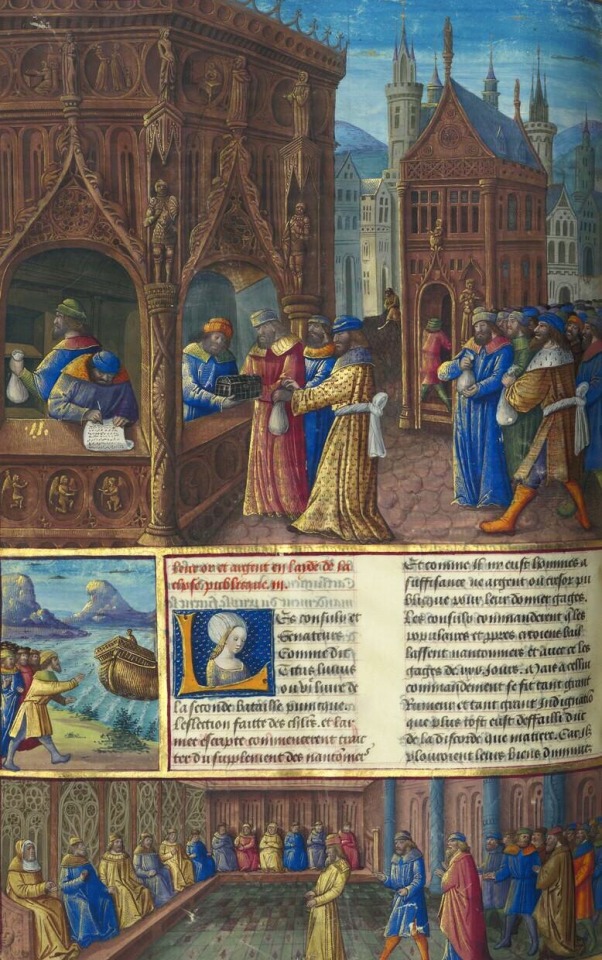 leur or et argent en laide de la
chose publicque. iii.
LEs consulz et
Senateurs
Comme dit
Titus livius
ou vi livre de
la seconde bataille punicque.
leslection faitte des chlrs. et lar
mee escripte commencerent trac
ter du supplement des nautonniers
Et comme il ny eust hommes a
suffisance ne argent ou tresor pu
blicque pour leur donner gages.
Les consulz commanderent q les
populaires et ppres citoiens bail
lassent nautonniers et avec ce les
gages de xxx jours. Mais a cellui
commandement se fist tant grant
Rumeur et tant grant Indignation
que plus tost eust deffailli duc
de la discorde que matiere. Car ilz
plouroient leurs biens diminuez